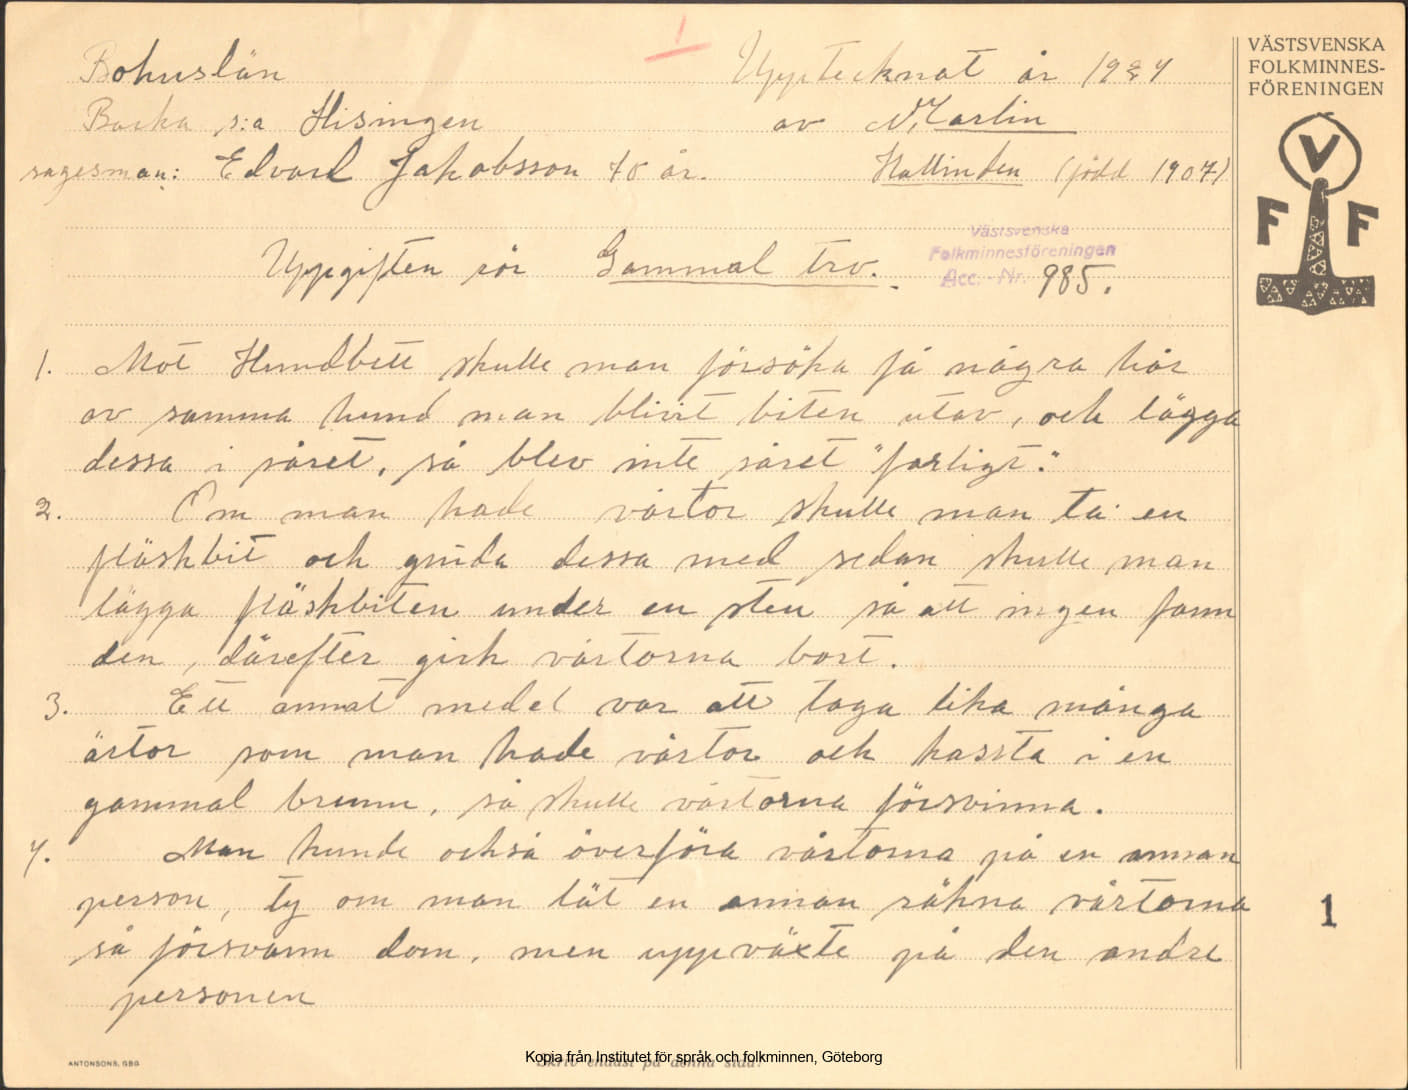 Bohuslän
Backa s:a Hisingen
sagesman: Edvard Jakobsson 70 år.
Upptecknat år 1927
av N. Carlin
Hallinden (född 1907)
Uppgiften rör Gammal tro.
Västsvenska
Folkminnesföreningen
Acc. - Nr. 985.
VÄSTSVENSKA
FOLKMINNES-
FÖRENINGEN
V
F F
1. Mot Hundbett skulle man försöka få några hår
av samma hund man blivit biten utav, och lägga
dessa i såret, så blev inte såret "farligt".
2. Om man hade vårtor skulle man ta en
fläskbit och gnida dessa med sedan skulle man
lägga fläskbiten under en sten så att ingen fann
den, därefter gick vårtorna bort.
3. Ett annat medel var att taga lika många
ärtor som man hade vårtor och kassta i en
gammal brunn, så skulle vårtorna försvinna.
4. Man kunde också överföra vårtorna på en annan
person, ty om man lät en annan räkna vårtorna
så försvann dom, men uppväxte på den andre
personen
1
ANTONSONS, GBG
Skriv endast på denna sida!
Kopia från Institutet för språk och folkminnen, Göteborg